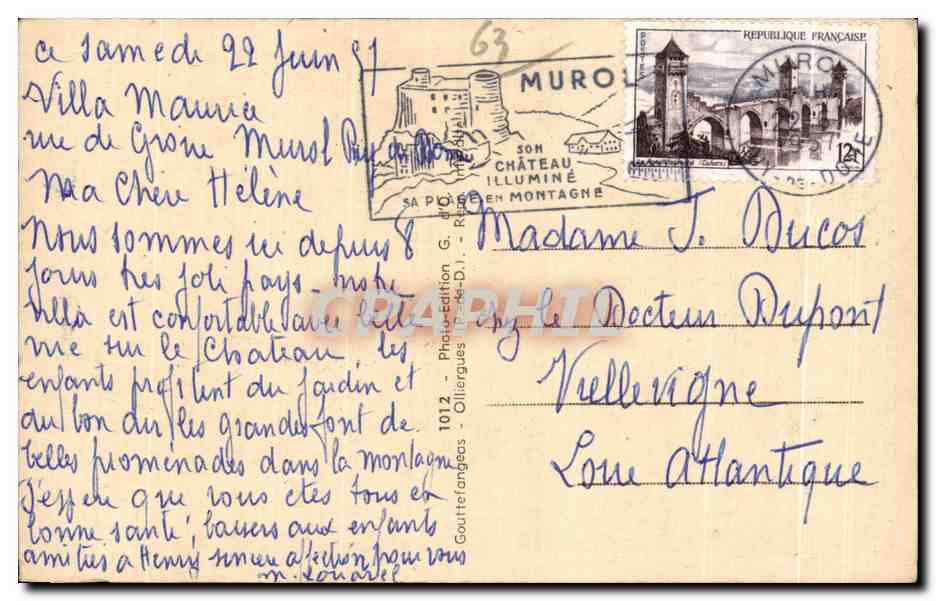 ce samedi 22 Juin 57
Villa Maurice
rue de Groire Murol Puy de Dôme
Ma Chère Hélène
Nous sommes ici depuis 8
jours très joli pays - notre
villa est confortable avec belle
vue sur le Chateau, les
enfants profitent du jardin et
du bon air, les grandes font de
belles promenades dans la montagne
J'espère que vous êtes tous en
bonne santé; baisers aux enfants
amitiés à Henry sincère affection pour vous
M.
63
MUROL
SON
CHÂTEAU
ILLUMINÉ
SA PLAGE EN MONTAGNE
POSTES
REPUBLIQUE FRANÇAISE
12F
MUROL
PUY-DE-DOME
Madame J. Ducos
chez le Docteur Dupont
Vieillevigne
Loire Atlantique
1012 - Photo-Edition G. d'O
Gouttefangeas - Olliergues (P.-de-D.). -
CPAPHIL